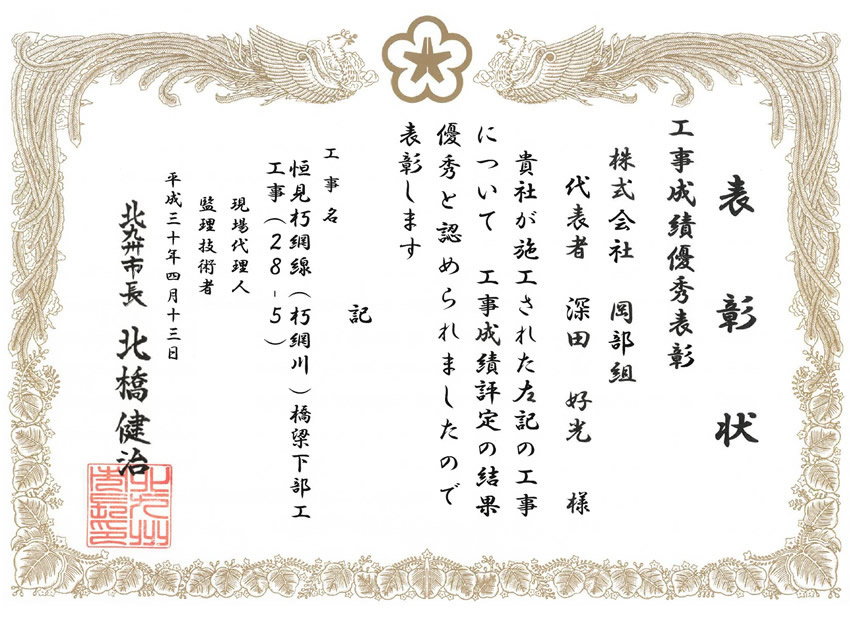 表彰状
工事成績優秀表彰
株式会社 岡部組
代表者 深田 好光 様
貴社が施工された左記の工事
について 工事成績評定の結果
優秀と認められましたので
表彰します
記
工事名
恒見朽網線(朽網川)橋梁下部工
工事(28-5)
現場代理人
監理技術者
平成三十年四月十三日
北九州市長 北橋健治